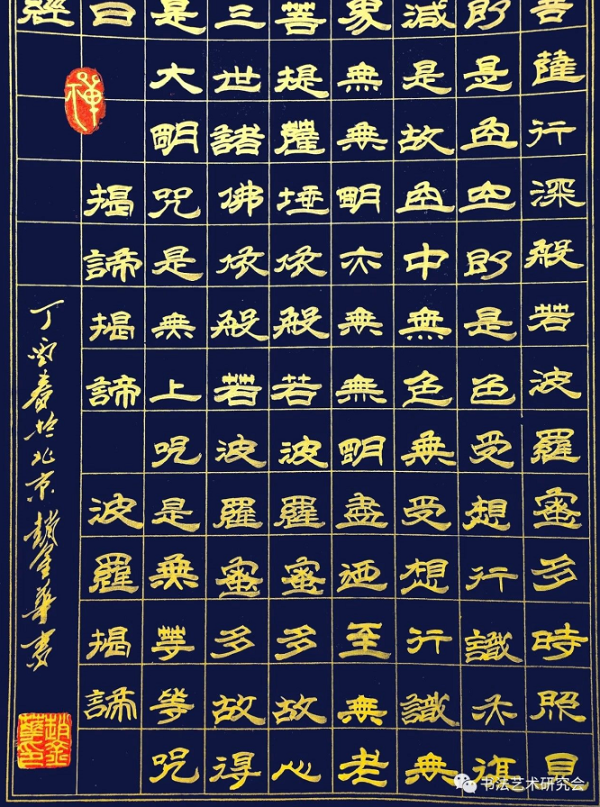 菩薩行深般若波羅蜜多時照見
即是空空即是色受想行識亦復
減是故空中無色無受想行識無
界無無明亦無無明盡迺至無老
菩提薩埵依般若波羅蜜多故心
三世諸佛依般若波羅蜜多故得
是大明咒是無上咒是無等等咒
曰 揭諦揭諦 波羅揭諦
經
禪
丁酉春於北京趙金華書
趙金華印
书法艺术研究会